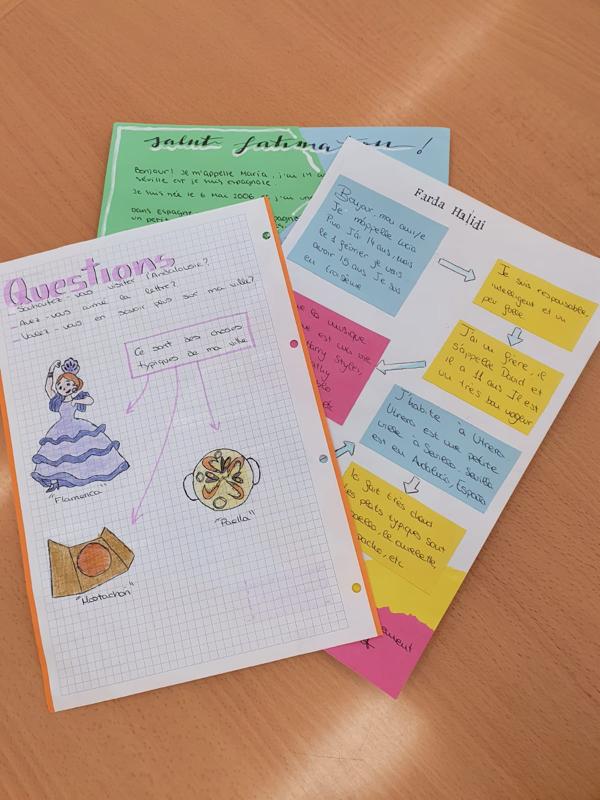 Salut fatima !
Bonjour! Je m'appelle María, j'ai 14
Séville et je suis espagnole.
Je suis née le 6 Mai 2006 et j'ai un
Dans Espagne
un petit
Questions
- Souhaitez-vous visiter (Andalousie?
- Avez-vous aimé la lettre?
- Voulez-vous en savoir plus sur ma ville?
Ce sont des choses
typiques de ma ville
"Flamenca"
"Paella"
"Mostachon"
Farda Halidi
Bonjour, mon ami/e
Je m'appelle Lucía
J'ai 14 ans, mais
le 1 février je vais
avoir 15 ans. Je suis
en troisième
Je suis responsable,
intelligent et un
peu
J'ai un frère, il
s'appelle David et
il a 11 ans. Il est
un très bon
la musique
est
Harry Styles,
J'habite à Utrera
Utrera est une petite
ville à Sevilla. Sevilla
est en Andalucía, España.
fait très chaud
plats typiques sont
etc